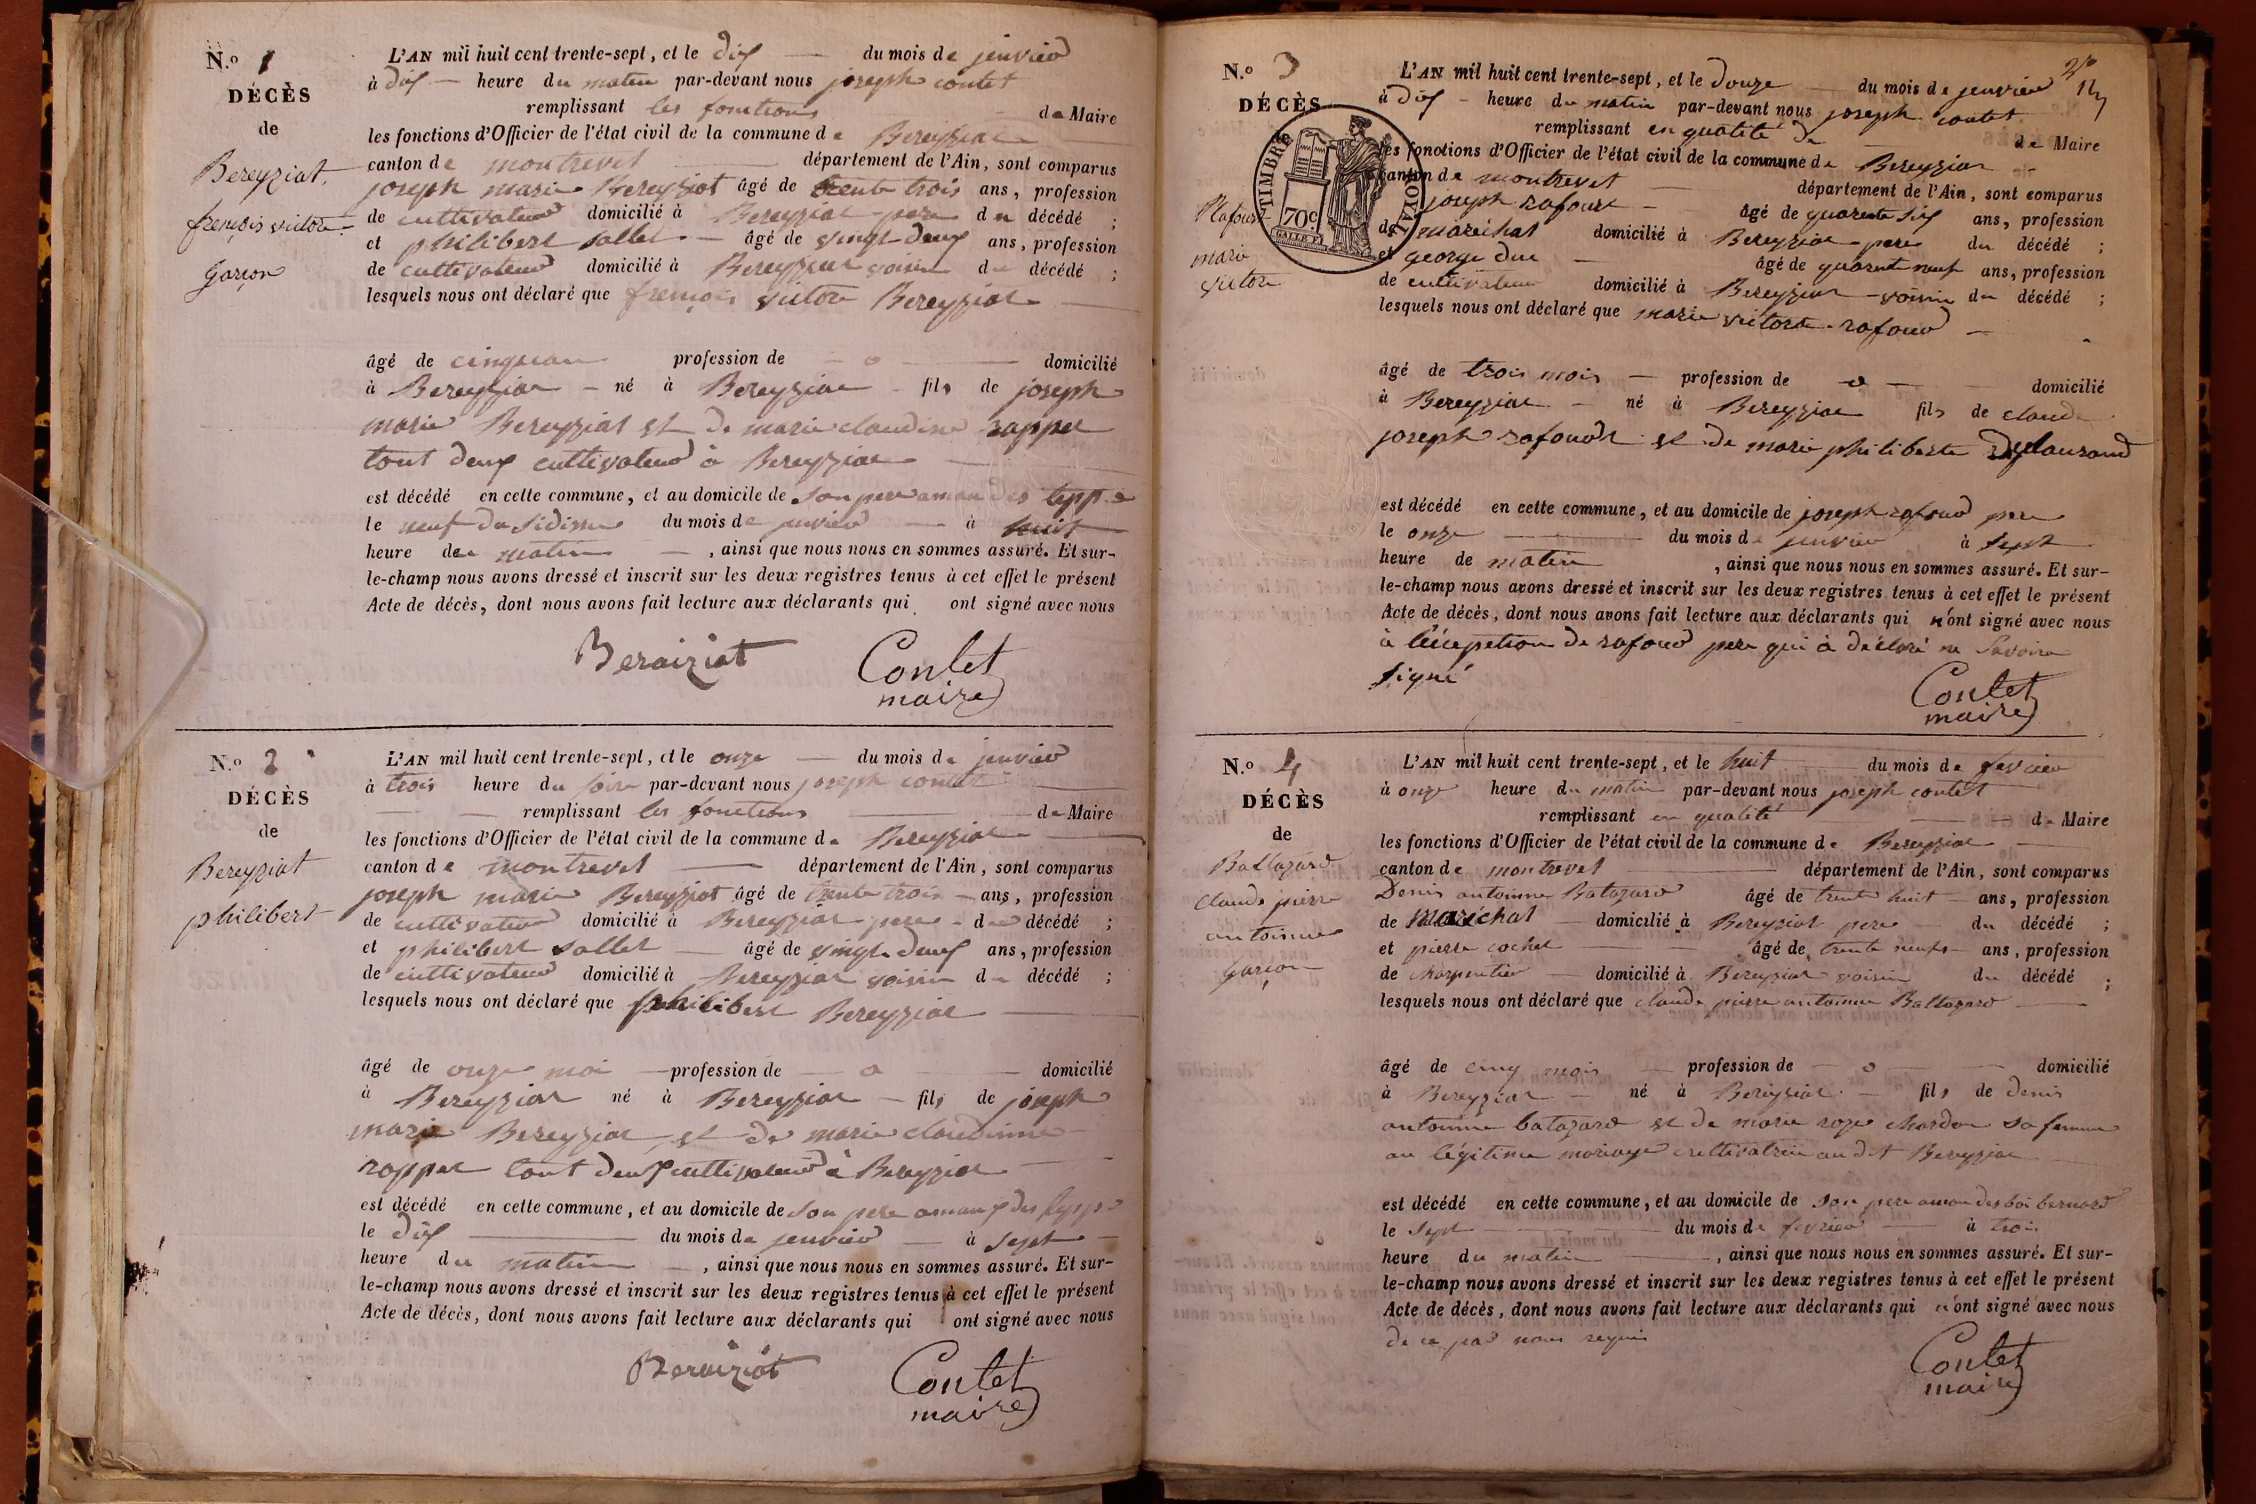 N.o 1
DÉCÈS
de
Bereyziat
françois victor
Garçon
L'AN mil huit cent trente-sept, et le dix du mois de jenvier
à dix heure du matin par-devant nous joseph contet
remplissant les fonctions de Maire
les fonctions d'Officier de l'état civil de la commune de Bereyziat
canton de montrevel département de l'Ain, sont comparus
joseph marie Bereyziat âgé de trente trois ans, profession
de cultivateur domicilié à Bereyziat pere du décédé ;
et philibert sallet âgé de vingt deux ans, profession
de cultivateur domicilié à Bereyziat voisin du décédé ;
lesquels nous ont déclaré que françois victor Bereyziat
âgé de cinq ans profession de o domicilié
à Bereyziat né à Bereyziat fils de joseph
marie Bereyziat et de marie claudine rappet
tout deux cultivateur à Bereyziat
est décédé en cette commune, et au domicile de son pere
le neuf du mois de jenvier à huit
heure de matin , ainsi que nous nous en sommes assuré. Et sur-
le-champ nous avons dressé et inscrit sur les deux registres tenus à cet effet le présent
Acte de décès, dont nous avons fait lecture aux déclarants qui ont signé avec nous
Beraiziat Contet
maire
N.o 2
DÉCÈS
de
Bereyziat
philibert
L'AN mil huit cent trente-sept, et le onze du mois de jenvier
à trois heure du soire par-devant nous joseph contet
remplissant les fonctions de Maire
les fonctions d'Officier de l'état civil de la commune de Bereyziat
canton de montrevel département de l'Ain, sont comparus
joseph marie Bereyziat âgé de trente trois ans, profession
de cultivateur domicilié à Bereyziat pere du décédé ;
et philibert sallet âgé de vingt deux ans, profession
de cultivateur domicilié à Bereyziat voisin du décédé ;
lesquels nous ont déclaré que philibert Bereyziat
âgé de onze moi profession de o domicilié
à Bereyziat né à Bereyziat fils de joseph
marie Bereyziat et de marie claudinne
rappet tout deux cultivateur à Bereyziat
est décédé en cette commune, et au domicile de son pere
le dix du mois de jenvier à sept
heure du matin , ainsi que nous nous en sommes assuré. Et sur-
le-champ nous avons dressé et inscrit sur les deux registres tenus à cet effet le présent
Acte de décès, dont nous avons fait lecture aux déclarants qui ont signé avec nous
Beraiziat Contet
maire
N.o 3
DÉCÈS
TIMBRE ROYAL
70c.
marie
victor
L'AN mil huit cent trente-sept, et le douze du mois de jenvier
à dix heure du matin par-devant nous joseph contet
remplissant en qualité de de Maire
les fonctions d'Officier de l'état civil de la commune de Bereyziat
canton de montrevel département de l'Ain, sont comparus
joseph rafourt âgé de quarente six ans, profession
de maréchal domicilié à Bereyziat pere du décédé ;
et george duc âgé de quarente neuf ans, profession
de cultivateur domicilié à Bereyziat voisin du décédé ;
lesquels nous ont déclaré que marie victore rafour
âgé de trois mois profession de o domicilié
à Bereyziat né à Bereyziat fils de claude
joseph rafourt et de marie philiberte
est décédé en cette commune, et au domicile de joseph rafour pere
le onze du mois de jenvier à sept
heure de matin , ainsi que nous nous en sommes assuré. Et sur-
le-champ nous avons dressé et inscrit sur les deux registres tenus à cet effet le présent
Acte de décès, dont nous avons fait lecture aux déclarants qui n'ont signé avec nous
à l'éxception de rafour pere qui à déclaré ne savoire
signé
Contet
maire
N.o 4
DÉCÈS
de
Baltazard
claude pierre
antoinne
Garçon
L'AN mil huit cent trente-sept, et le huit du mois de fevrier
à onze heure du matin par-devant nous joseph contet
remplissant en qualité de Maire
les fonctions d'Officier de l'état civil de la commune de Bereyziat
canton de montrevel département de l'Ain, sont comparus
Denis antoinne Batazard âgé de trente huit ans, profession
de maréchal domicilié à Bereyziat pere du décédé ;
et pierre cochet âgé de trente neuf ans, profession
de charpentier domicilié à Bereyziat voisin du décédé ;
lesquels nous ont déclaré que claude pierre antoinne Baltazard
âgé de cinq mois profession de o domicilié
à Bereyziat né à Bereyziat fils de denis
antoinne batazard et de marie roze chardon sa femme
au légitime mariage cultivatrice au dit Bereyziat
est décédé en cette commune, et au domicile de son pere
le sept du mois de fevrier à trois
heure du matin , ainsi que nous nous en sommes assuré. Et sur-
le-champ nous avons dressé et inscrit sur les deux registres tenus à cet effet le présent
Acte de décès, dont nous avons fait lecture aux déclarants qui n'ont signé avec nous
de ce par nous requis
Contet
maire